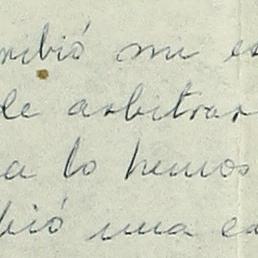 ribió mi es
de arbitrar
a lo hemos
bió una ca